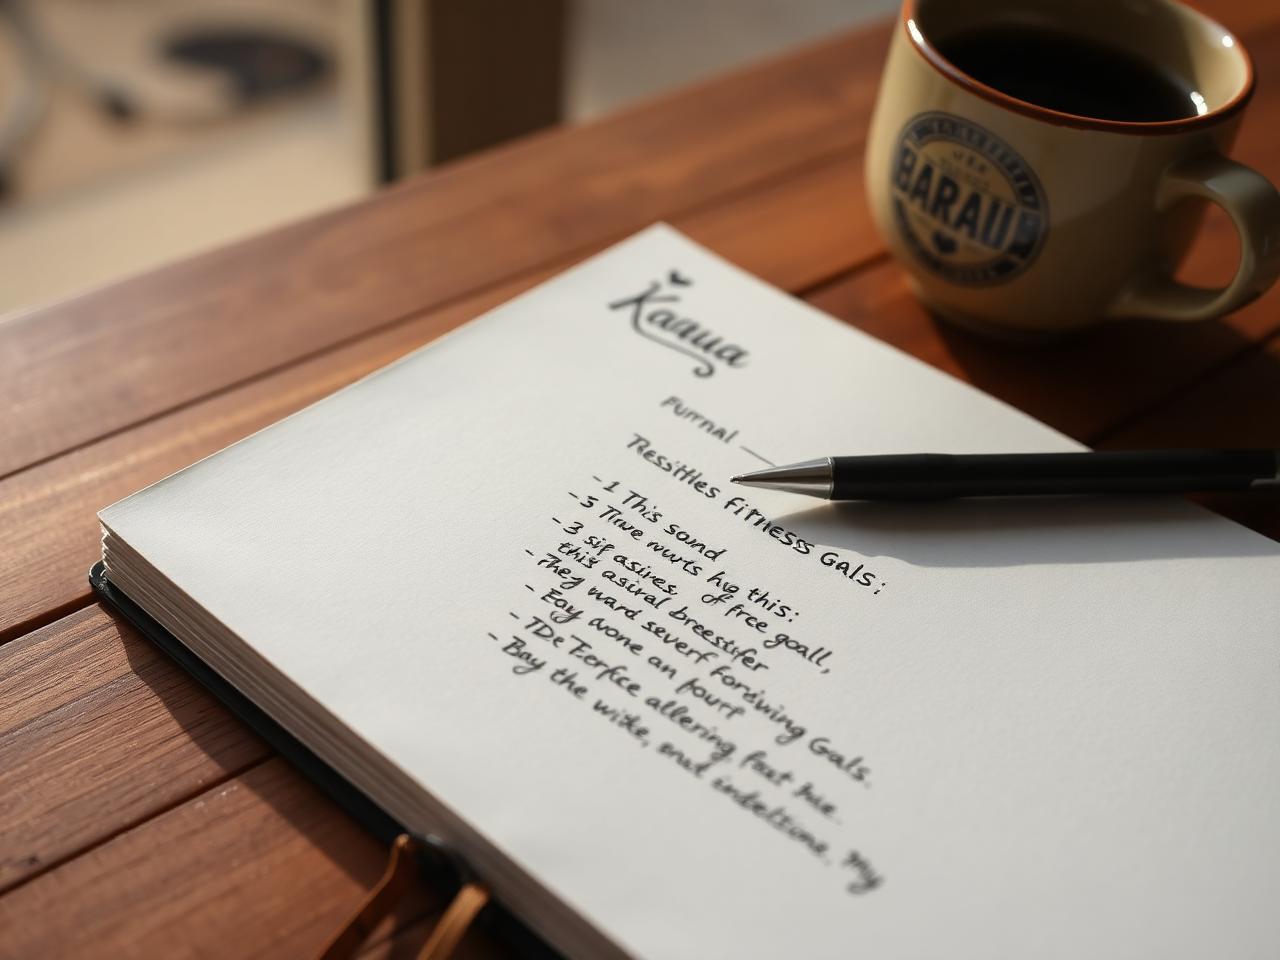 BARAU
Kaaua
Furnal
Ressittles fitness Gals:
- 1 This sond
- 5 Tiwe wurts hyg this:
- 3 sif asires, of free goall,
this asiral breestifer
- They ward severf fordwing Gals.
- Eay wone an fourf
- TDe Terfice allering faut hie.
- Bay the wiske, onat indeltions. My